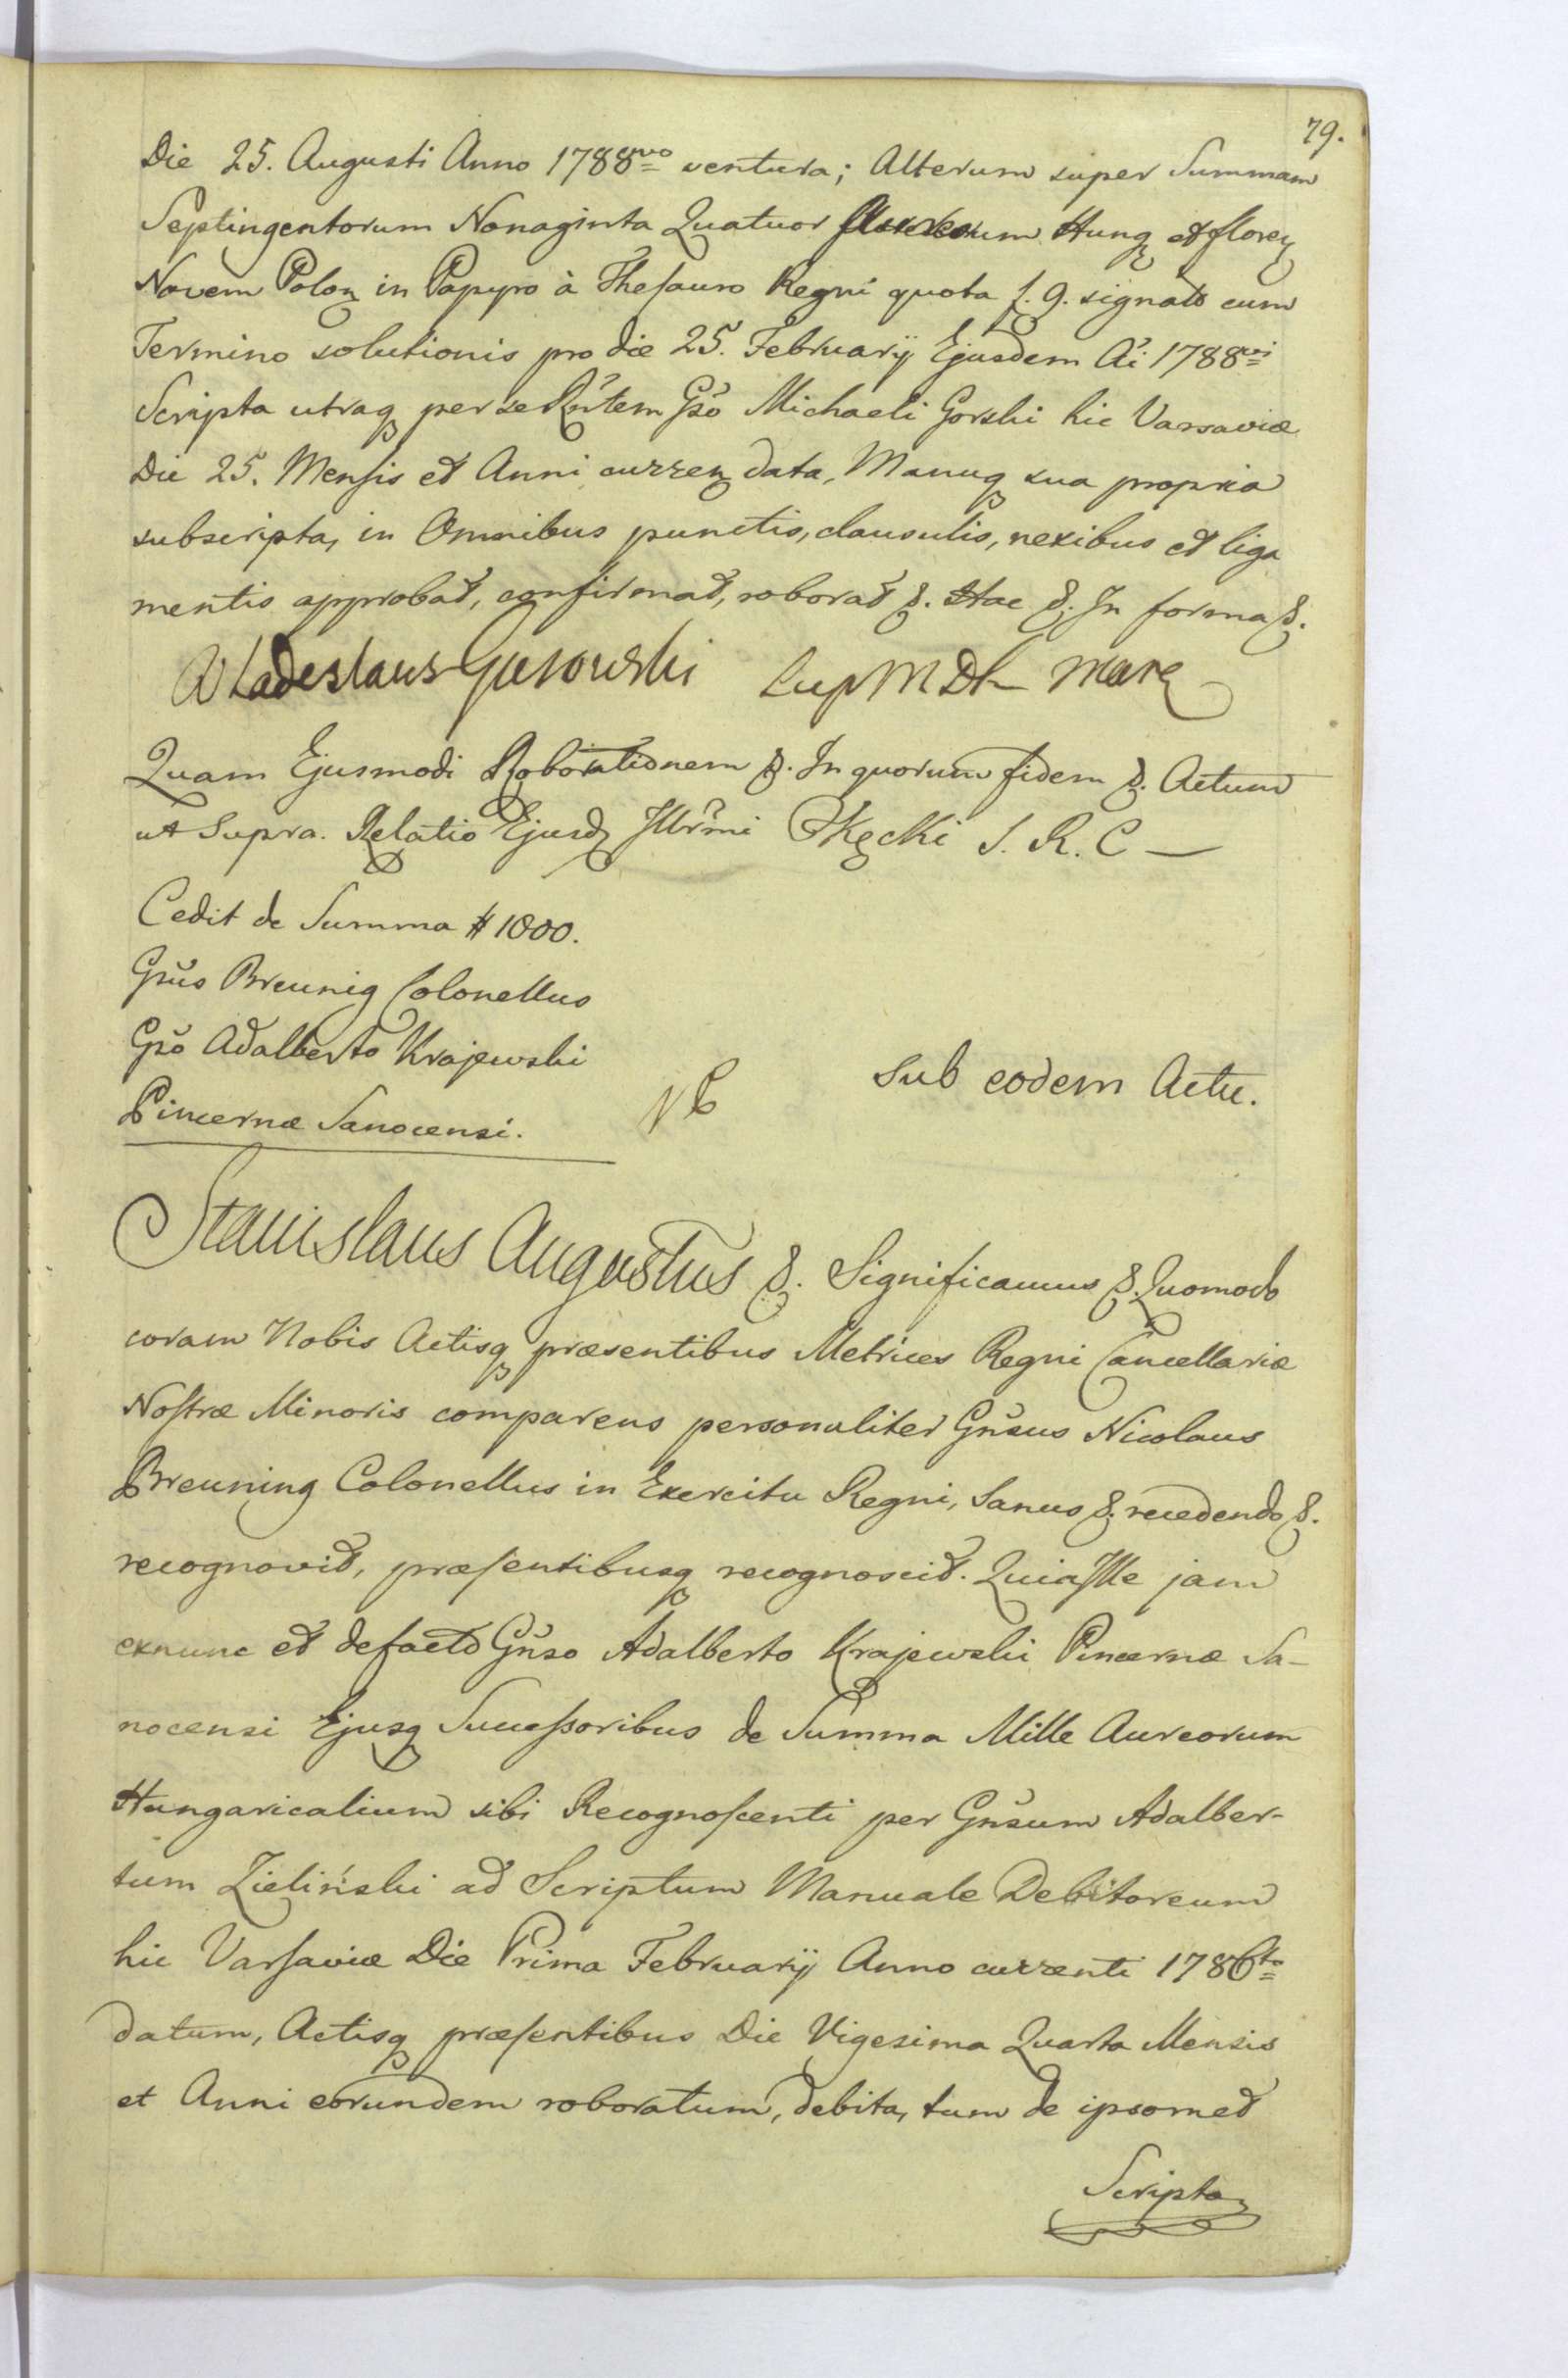 79.
Die 25. Augusti Anno 1788vo ventura; Alterum super Summam
Septingentorum Nonaginta Quatuor Aureorum Hung et floren
Novem Polon in Papyro à Thesauro Regni quota f. 9. signato cum
Termino solutionis pro die 25. Februarij Ejusdem Ai 1788vi
Scripta utraq per se Rntem Gso Michaeli Gorski hic Varsaviæ
Die 25. Mensis et Anni curren data, Manuq sua propria
subscripta, in Omnibus punctis, clausulis, nexibus et liga
mentis approbat, confirmat, roborat &. Hac &. In forma &.
Wladeslaus Gurowski
Quam Ejusmodi Roborationem &. In quorum fidem &. Actum
ut Supra. Relatio Ejusd Illrmi Okęcki S. R. C
Cedit de Summa # 1000.
Gsus Breunig Colonellus
Gso Adalberto Krajewski
Pincernæ Sanocensi.
Sub eodem Actu.
Stanislaus Augustus &. Significamus &. Quomodo
coram Nobis Actisq præsentibus Metrices Regni Cancellariæ
Nostræ Minoris comparens personaliter Gnsus Nicolaus
Breuning Colonellus in Exercitu Regni, Sanus &. recedendo &.
recognovit, præsentibusq recognoscit. Quia Ille jam
exnunc et defacto Gnso Adalberto Krajewski Pincernæ Sa-
nocensi Ejusq Successoribus de Summa Mille Aureorum
Hungaricalium sibi Recognoscenti per Gnsum Adalber-
tum Zieliński ad Scriptum Manuale Debitoreum
hic Varsaviæ Die Prima Februarij Anno currenti 1786to
datum, Actisq præsentibus Die Vigesima Quarta Mensis
et Anni eorundem roboratum, debita, tum de ipsomet
Scripto